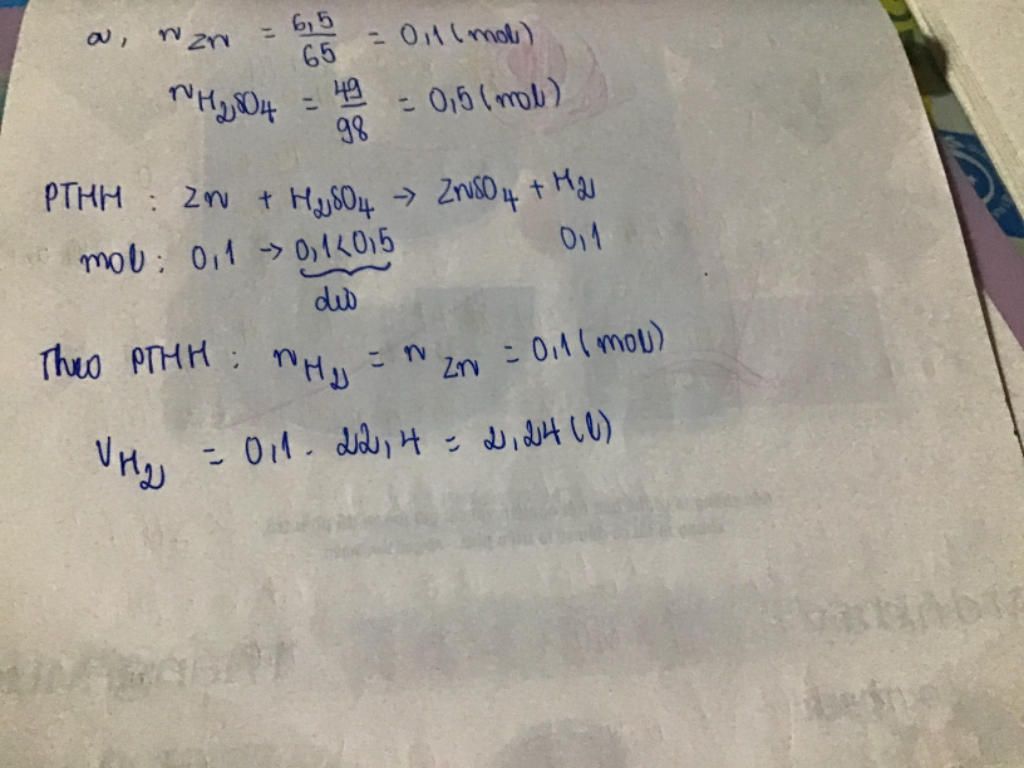 a, nZn = 6,5/65 = 0,1 (mol)
nH2SO4 = 49/98 = 0,5 (mol)
PTHH : Zn + H2SO4 → ZnSO4 + H2
mol: 0,1 → 0,1<0,5 0,1
dư
Theo PTHH : nH2 = nZn = 0,1 (mol)
VH2 = 0,1 . 22,4 = 2,24 (l)